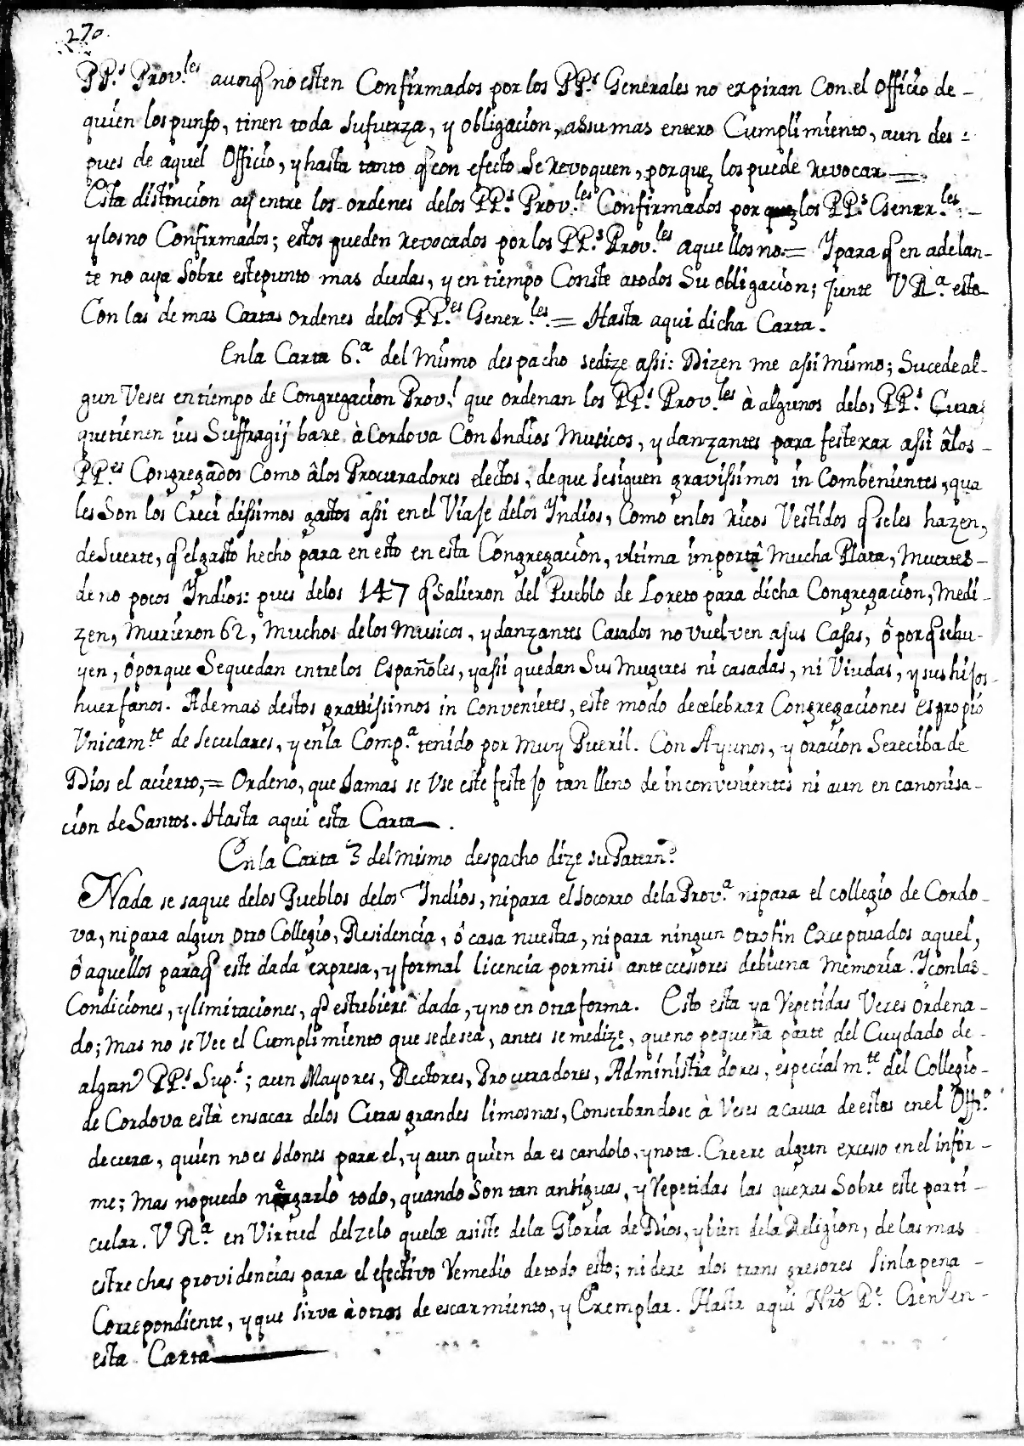 270.
PP.ˢ Prov.ˡᵉˢ aunq̃ no esten Confirmados por los PP.ˢ Generales no expiran con el Officio de -
quien los puso, tinen toda su fuerza, y obligacion, assu mas entero Cumplimiento, aun des =
pues de aquel Officio, y hasta tanto q̃ con efecto se revoquen, porque los puede revocar =
Esta distincion ay entre los ordenes de los PP.ˢ Prov.ˡᵉˢ Confirmados por los PP.ˢ Gener.ˡᵉˢ -
y los no Confirmados; estos pueden revocados por los PP.ˢ Prov.ˡᵉˢ aquellos no = Y para q̃ en adelan-
te no aya sobre este punto mas dudas, y en tiempo Conste a todos Su obligacion; Junte V Rᵃ. esta
Con las demas Cartas ordenes de los PP.ᵉˢ Gener.ˡᵉˢ = Hasta aqui dicha Carta.
En la Carta 6.ᵃ del Mismo despacho se dize assi: Dizen me assi mismo; Sucede al-
gun Veses en tiempo de Congregacion Prov.ˡ que ordenan los PP.ˢ Prov.ˡᵉˢ à algunos de los PP.ˢ Curas
que tienen ius Suffragij baxe à Cordova Con Indios Musicos, y danzantes para festexar assi â los -
PP.ᵉˢ Congregados Como â los Procuradores electos, de que se siguen gravissimos in Combenientes, qua
les Son los Creci dissimos gastos assi en el Viaje de los Indios, Como en los ricos Vestidos q̃ se les hazen,
de Suerte, q̃ el gasto hecho para en esto en esta Congregacion, ultima importâ Mucha Plata, Muertes -
de no pocos Indios: pues de los 147 q̃ Salieron del Pueblo de Loreto para dicha Congregacion, Medi -
zen, Murieron 62, Muchos de los Musicos, y danzantes Casados no vuelven a sus Casas, ô por q̃ se hu-
yen, ô porque Se quedan entre los Españoles, y assi quedan Sus Mugeres ni casadas, ni Viudas, y sus hijos -
huerfanos. Ademas destos gravissimos in Convenietes, este modo de celebrar Congregaciones es propio
Unicam.ᵗᵉ de seculares, y en la Comp.ᵃ tenido por Muy Pueril. Con Ayunos, y oracion Se reciba de
Dios el acierto, = Ordeno, que Jamas se Vse este festejo tan lleno de inconvenientes ni aun en canonisa -
cion de Santos. Hasta aqui esta Carta.
En la Carta 3 del mismo despacho dize su Patern.ᵈ
Nada se saque de los Pueblos de los Indios, ni para el socorro de la Prov.ᵃ ni para el collegio de Cordo -
va, ni para algun otro Collegio, Residencia, ô casa nuestra, ni para ningun otro fin Exceptuados aquel,
ô aquellos paraq̃ este dada expresa, y formal licencia por mis antecessores de buena Memoria. Y con las -
Condiciones, y limitaciones, q̃ estubiere dada, y no en otra forma. Esto esta ya Repetidas Vezes ordena -
do; Mas no se Vee el Cumplimiento que se desea, antes se me dize, que no pequeña parte del Cuydado de -
algunos PP.ˢ Sup.ˢ; aun Mayores, Rectores, Procuradores, Administradores, especialm.ᵗᵉ del Collegio -
de Cordova està en sacar de los Curas grandes limosnas, Conserbandose à Veses a causa de estas en el Offi.º
de cura, quien no es Idoneo para el, y aun quien da escandolo, y nota. Creere algun excesso en el infor -
me; Mas no puedo negarlo todo, quando son tan antiguas, y Repetidas las quexas Sobre este parti -
cular. V Rᵃ. en Virtud del zelo que le asiste de la Gloria de Dios, y bien de la Religion, de las mas
estrechas providencias para el efectivo Remedio de todo esto; ni dexe a los transgresores sin la pena -
Correpondiente, y que sirva à otros de escarmiento, y Exemplar. Hasta aqui Nrō Pᵉ. Gen.ˡ en -
esta Carta